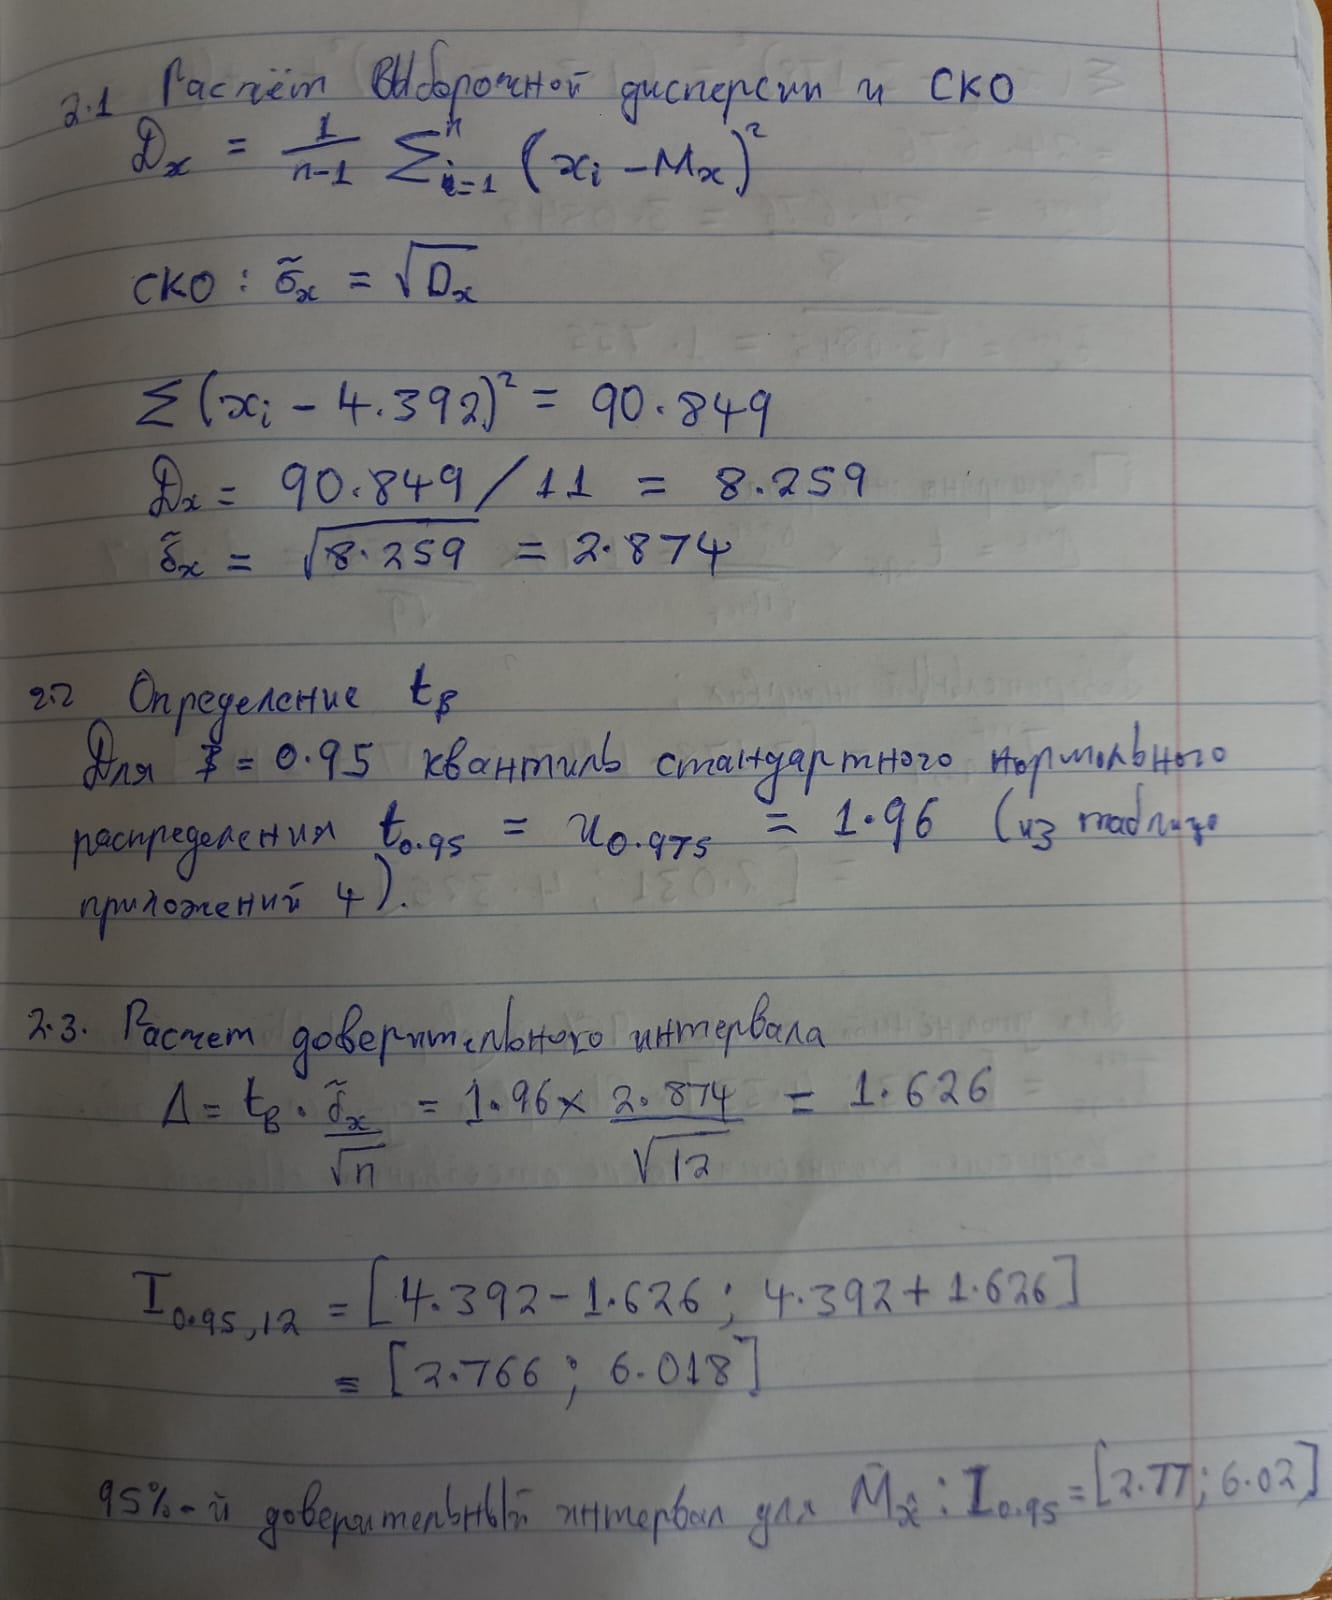 2.1 Расчёт выборочной дисперсии и СКО
Dx = 1/(n-1) Σ_{i=1}^{n} (xi - Mx)²
СКО : σ̃x = √Dx
Σ(xi - 4.392)² = 90.849
Dx = 90.849 / 11 = 8.259
σ̃x = √8.259 = 2.874
2.2 Определение tβ
Для = 0.95 квантиль стандартного нормального
распределения t0.95 = u0.975 = 1.96 (из таблицы
приложений 4).
2.3. Расчет доверительного интервала
Δ = tβ · σ̃x/√n = 1.96 × 2.874/√12 = 1.626
I0.95,12 = [4.392 - 1.626 ; 4.392 + 1.626]
= [2.766 ; 6.018]
95%-й доверительный интервал для Mx̂ : I0.95 = [2.77 ; 6.02]